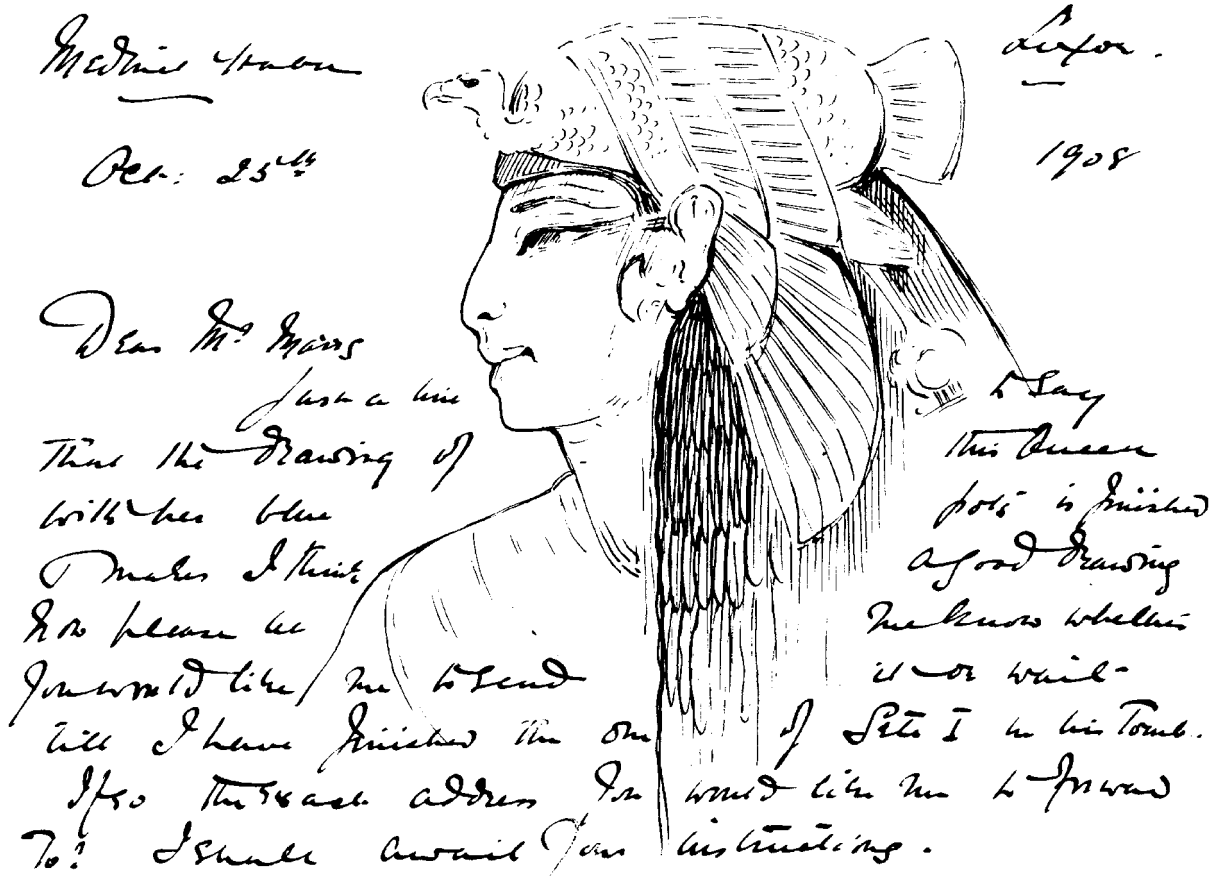 Medinet Habu Luxor.
Oct: 25th 1908
Dear Mrs
Just a line to say
that the drawing of this Queen
with her blue is finished
makes I think a good drawing
Now please let me know whether
you would like me to send it or wait
till I have finished the one of Sete I in his Tomb.
If so the exact address you would like me to forward
To? I shall await your instructions.